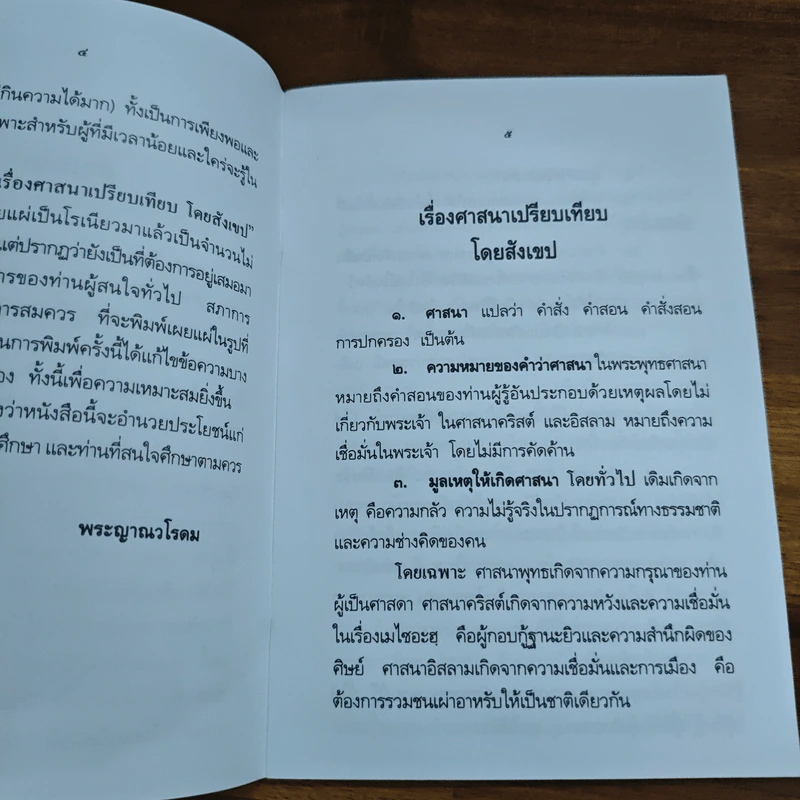 ๔
กินความได้มาก) ทั้งเป็นการเพียงพอและ
พาะสำหรับผู้ที่มีเวลาน้อยและใคร่จะรู้ใน
รื่องศาสนาเปรียบเทียบ โดยสังเขป"
ยแผ่เป็นโรเนียวมาแล้วเป็นจำนวนไม่
แต่ปรากฏว่ายังเป็นที่ต้องการอยู่เสมอมา
การของท่านผู้สนใจทั่วไป สภาการ
การสมควร ที่จะพิมพ์เผยแผ่ในรูปที่
นการพิมพ์ครั้งนี้ได้แก้ไขข้อความบาง
อง ทั้งนี้เพื่อความเหมาะสมยิ่งขึ้น
งว่าหนังสือนี้จะอำนวยประโยชน์แก่
ศึกษา และท่านที่สนใจศึกษาตามควร
พระญาณวโรดม
๕
เรื่องศาสนาเปรียบเทียบ
โดยสังเขป
๑. ศาสนา แปลว่า คำสั่ง คำสอน คำสั่งสอน
การปกครอง เป็นต้น
๒. ความหมายของคำว่าศาสนา ในพระพุทธศาสนา
หมายถึงคำสอนของท่านผู้รู้อันประกอบด้วยเหตุผลโดยไม่
เกี่ยวกับพระเจ้า ในศาสนาคริสต์ และอิสลาม หมายถึงความ
เชื่อมั่นในพระเจ้า โดยไม่มีการคัดค้าน
๓. มูลเหตุให้เกิดศาสนา โดยทั่วไป เดิมเกิดจาก
เหตุ คือความกลัว ความไม่รู้จริงในปรากฏการณ์ทางธรรมชาติ
และความช่างคิดของคน
โดยเฉพาะ ศาสนาพุทธเกิดจากความกรุณาของท่าน
ผู้เป็นศาสดา ศาสนาคริสต์เกิดจากความหวังและความเชื่อมั่น
ในเรื่องเมไซอะฮฺ คือผู้กอบกู้ฐานะยิวและความสำนึกผิดของ
ศิษย์ ศาสนาอิสลามเกิดจากความเชื่อมั่นและการเมือง คือ
ต้องการรวมชนเผ่าอาหรับให้เป็นชาติเดียวกัน